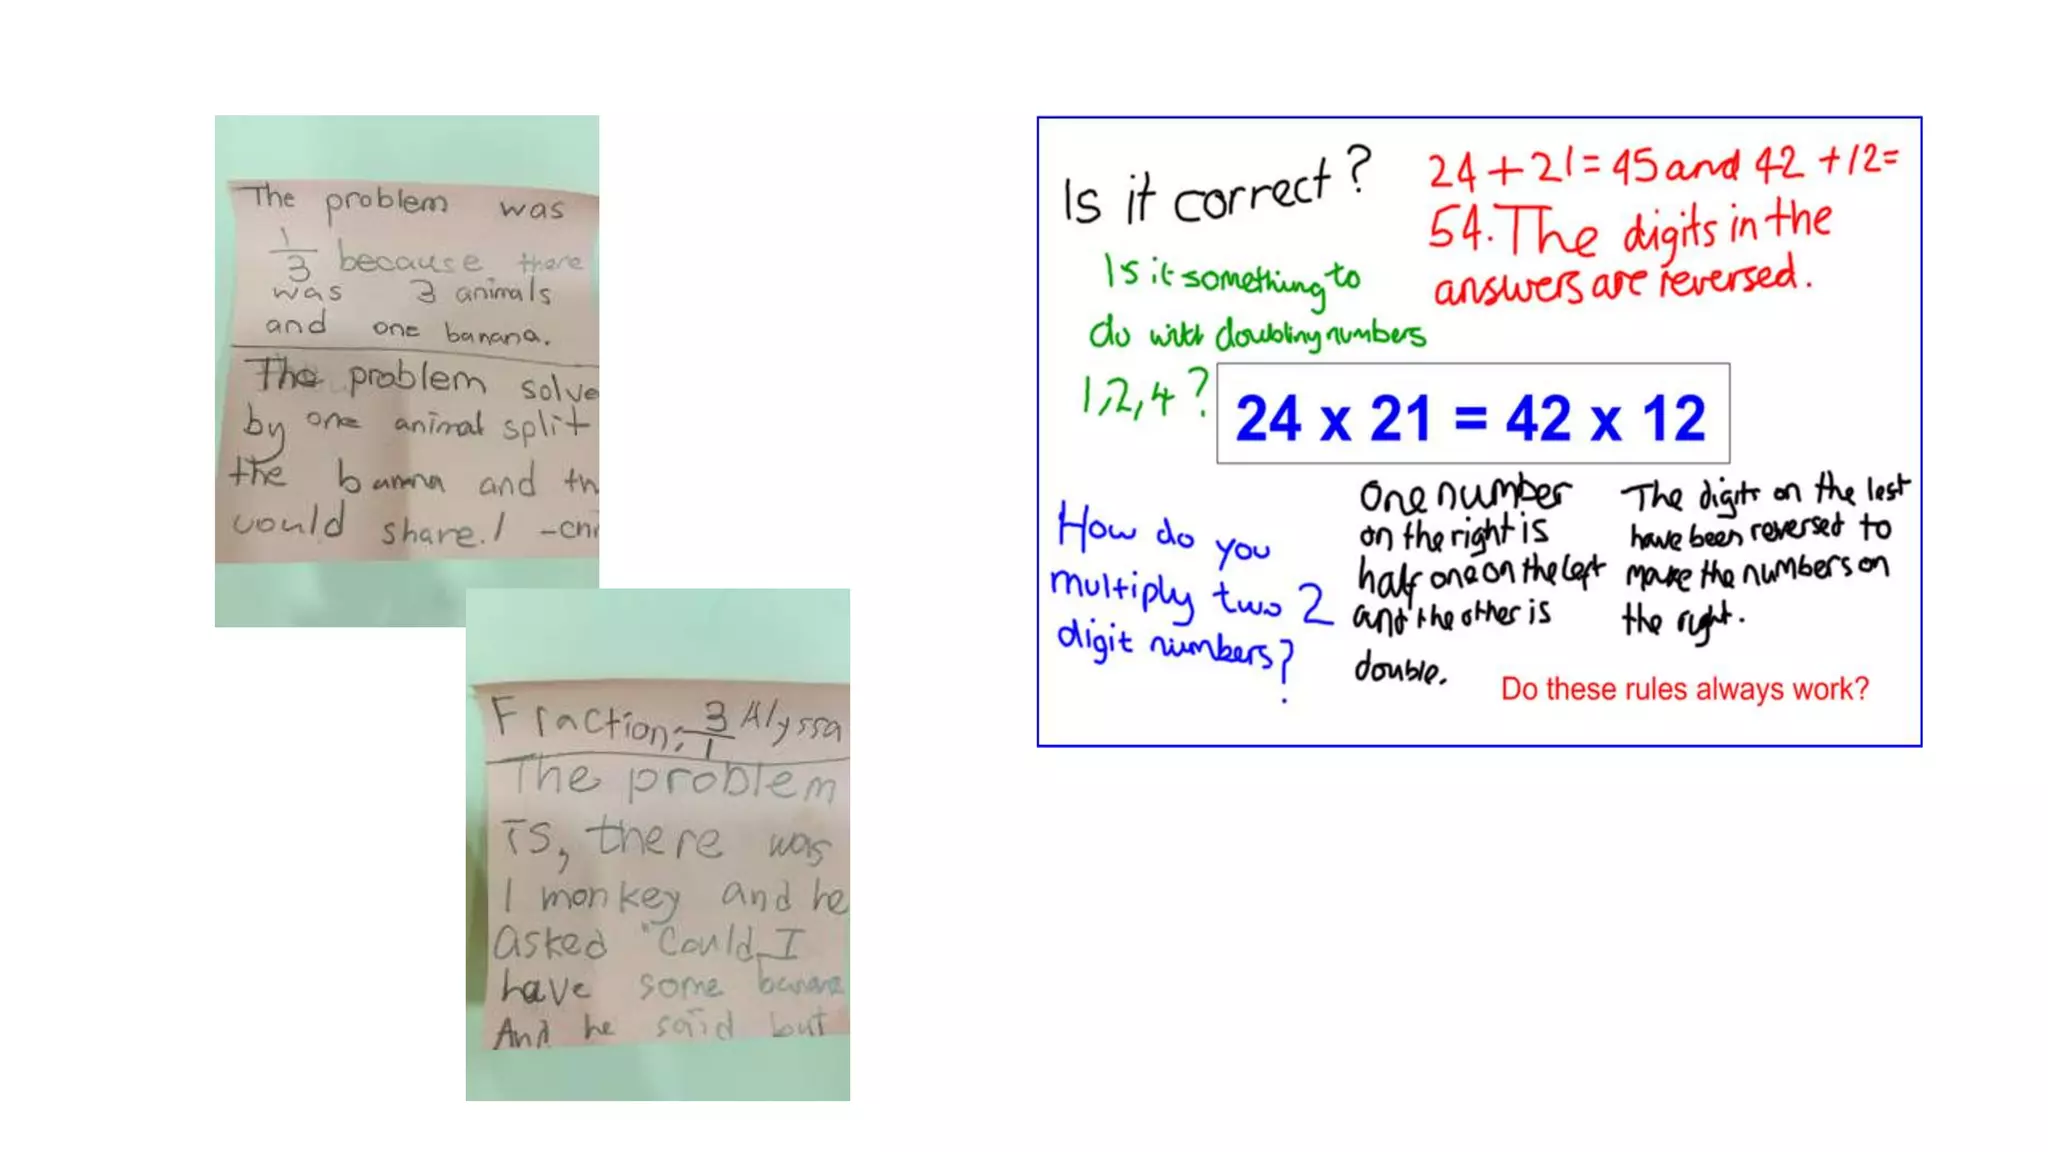 The problem was
1/3 because there
was 3 animals
and one banana.
The problem solve
by one animal split
the banana and th
would share. /
Fraction: 3/1 Alyssa
The problem
is, there was
1 monkey and he
asked "Could I
have some banana
And he said but
Is it correct?
24 + 21 = 45 and 42 + 12 =
54. The digits in the
answers are reversed.
Is it something to
do with doubling numbers
1, 2, 4 ?
24 x 21 = 42 x 12
How do you
multiply two 2
digit numbers?
One number
on the right is
half one on the left
and the other is
double.
The digits on the left
have been reversed to
make the numbers on
the right.
Do these rules always work?